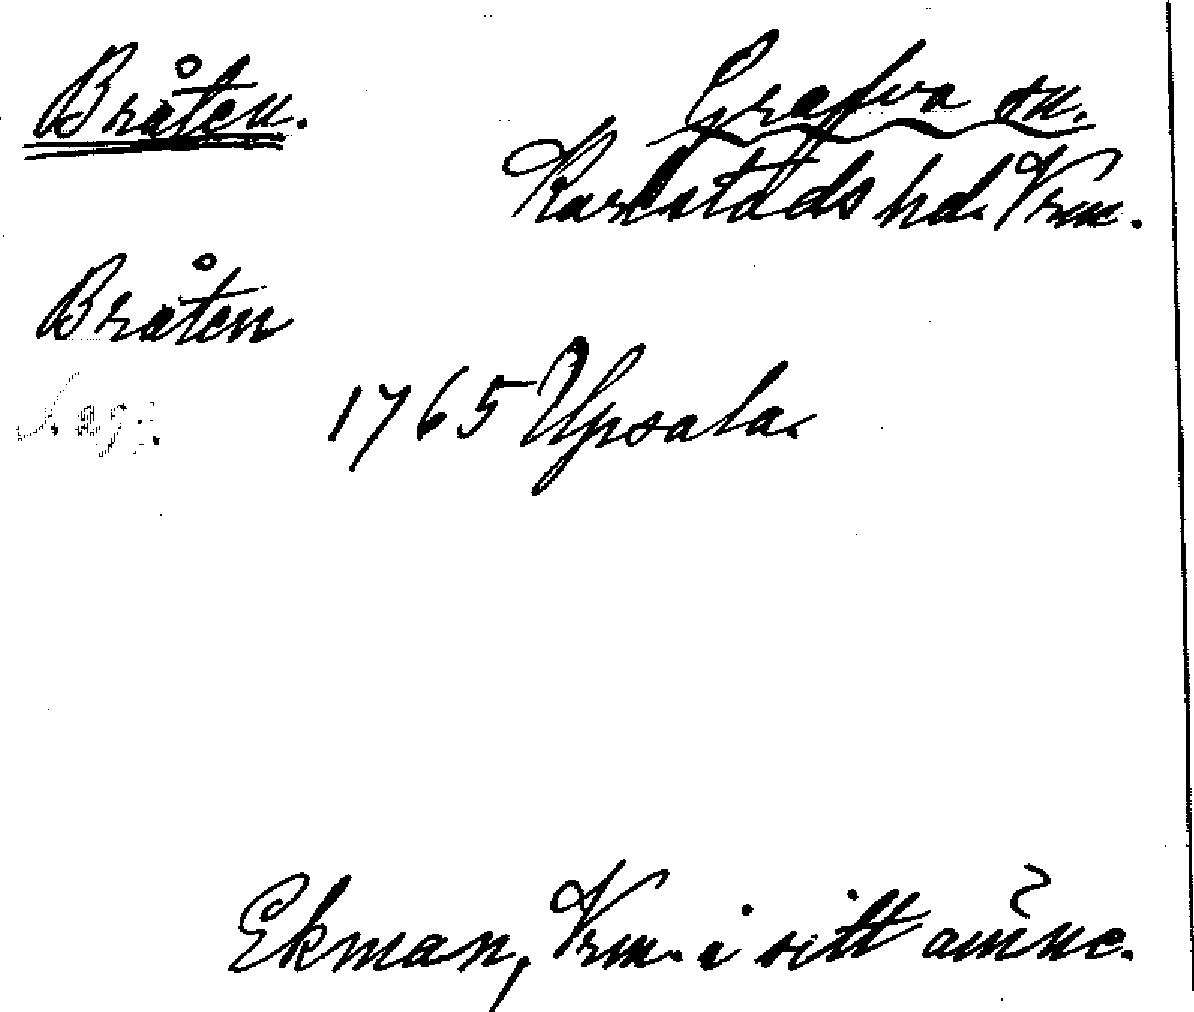 Bråten. Grafva sn.
Karlstads hd. Vrm.
Bråten
1765 Upsala.
Ekman, Vrm. i sitt ämne.